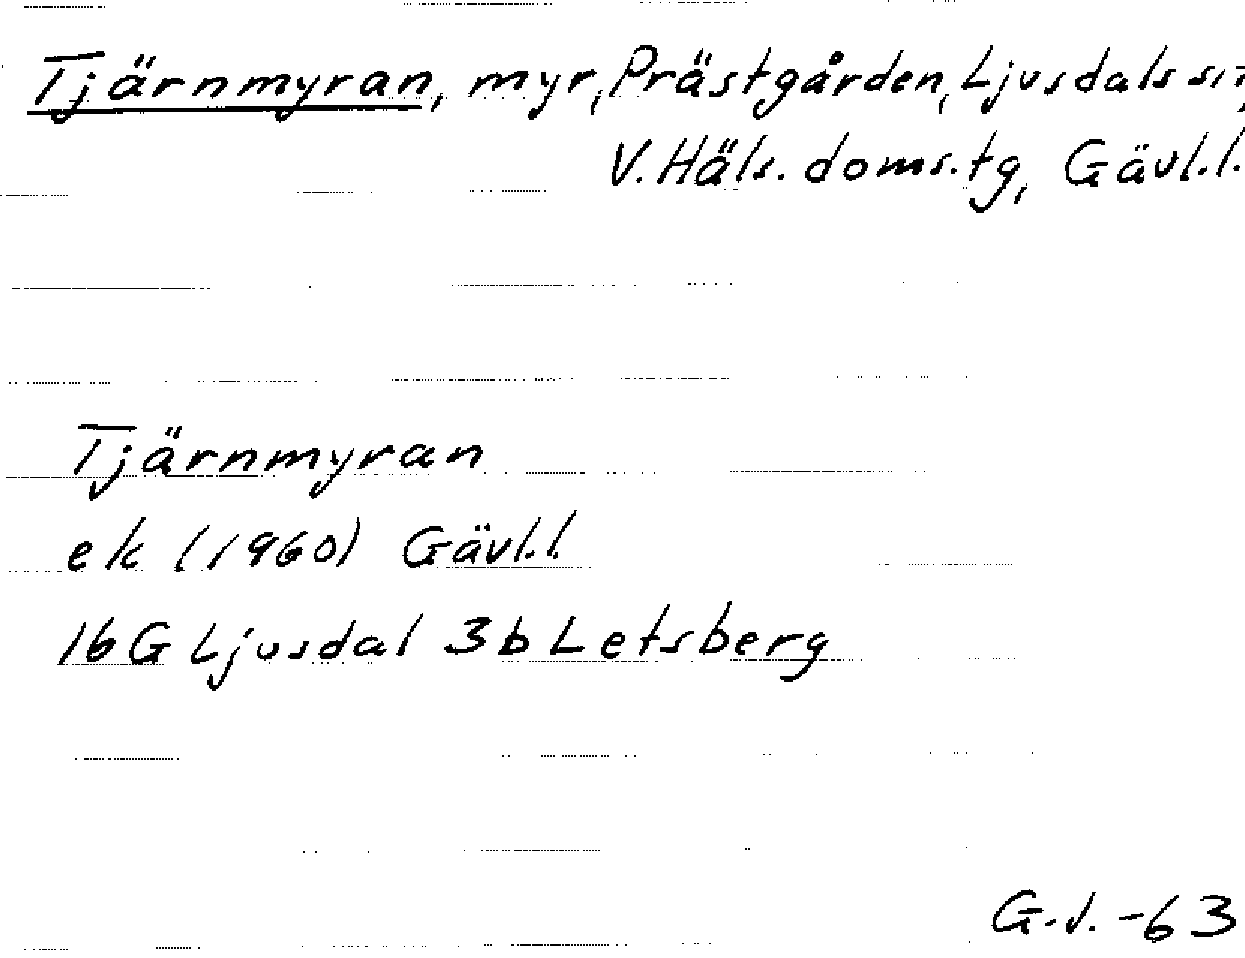 Tjärnmyran, myr, Prästgården, Ljusdals sn,
V. Häls. doms.tg, Gävl.l.
Tjärnmyran
ek (1960) Gävl.l
16G Ljusdal 3b Letsberg
G.J. -63